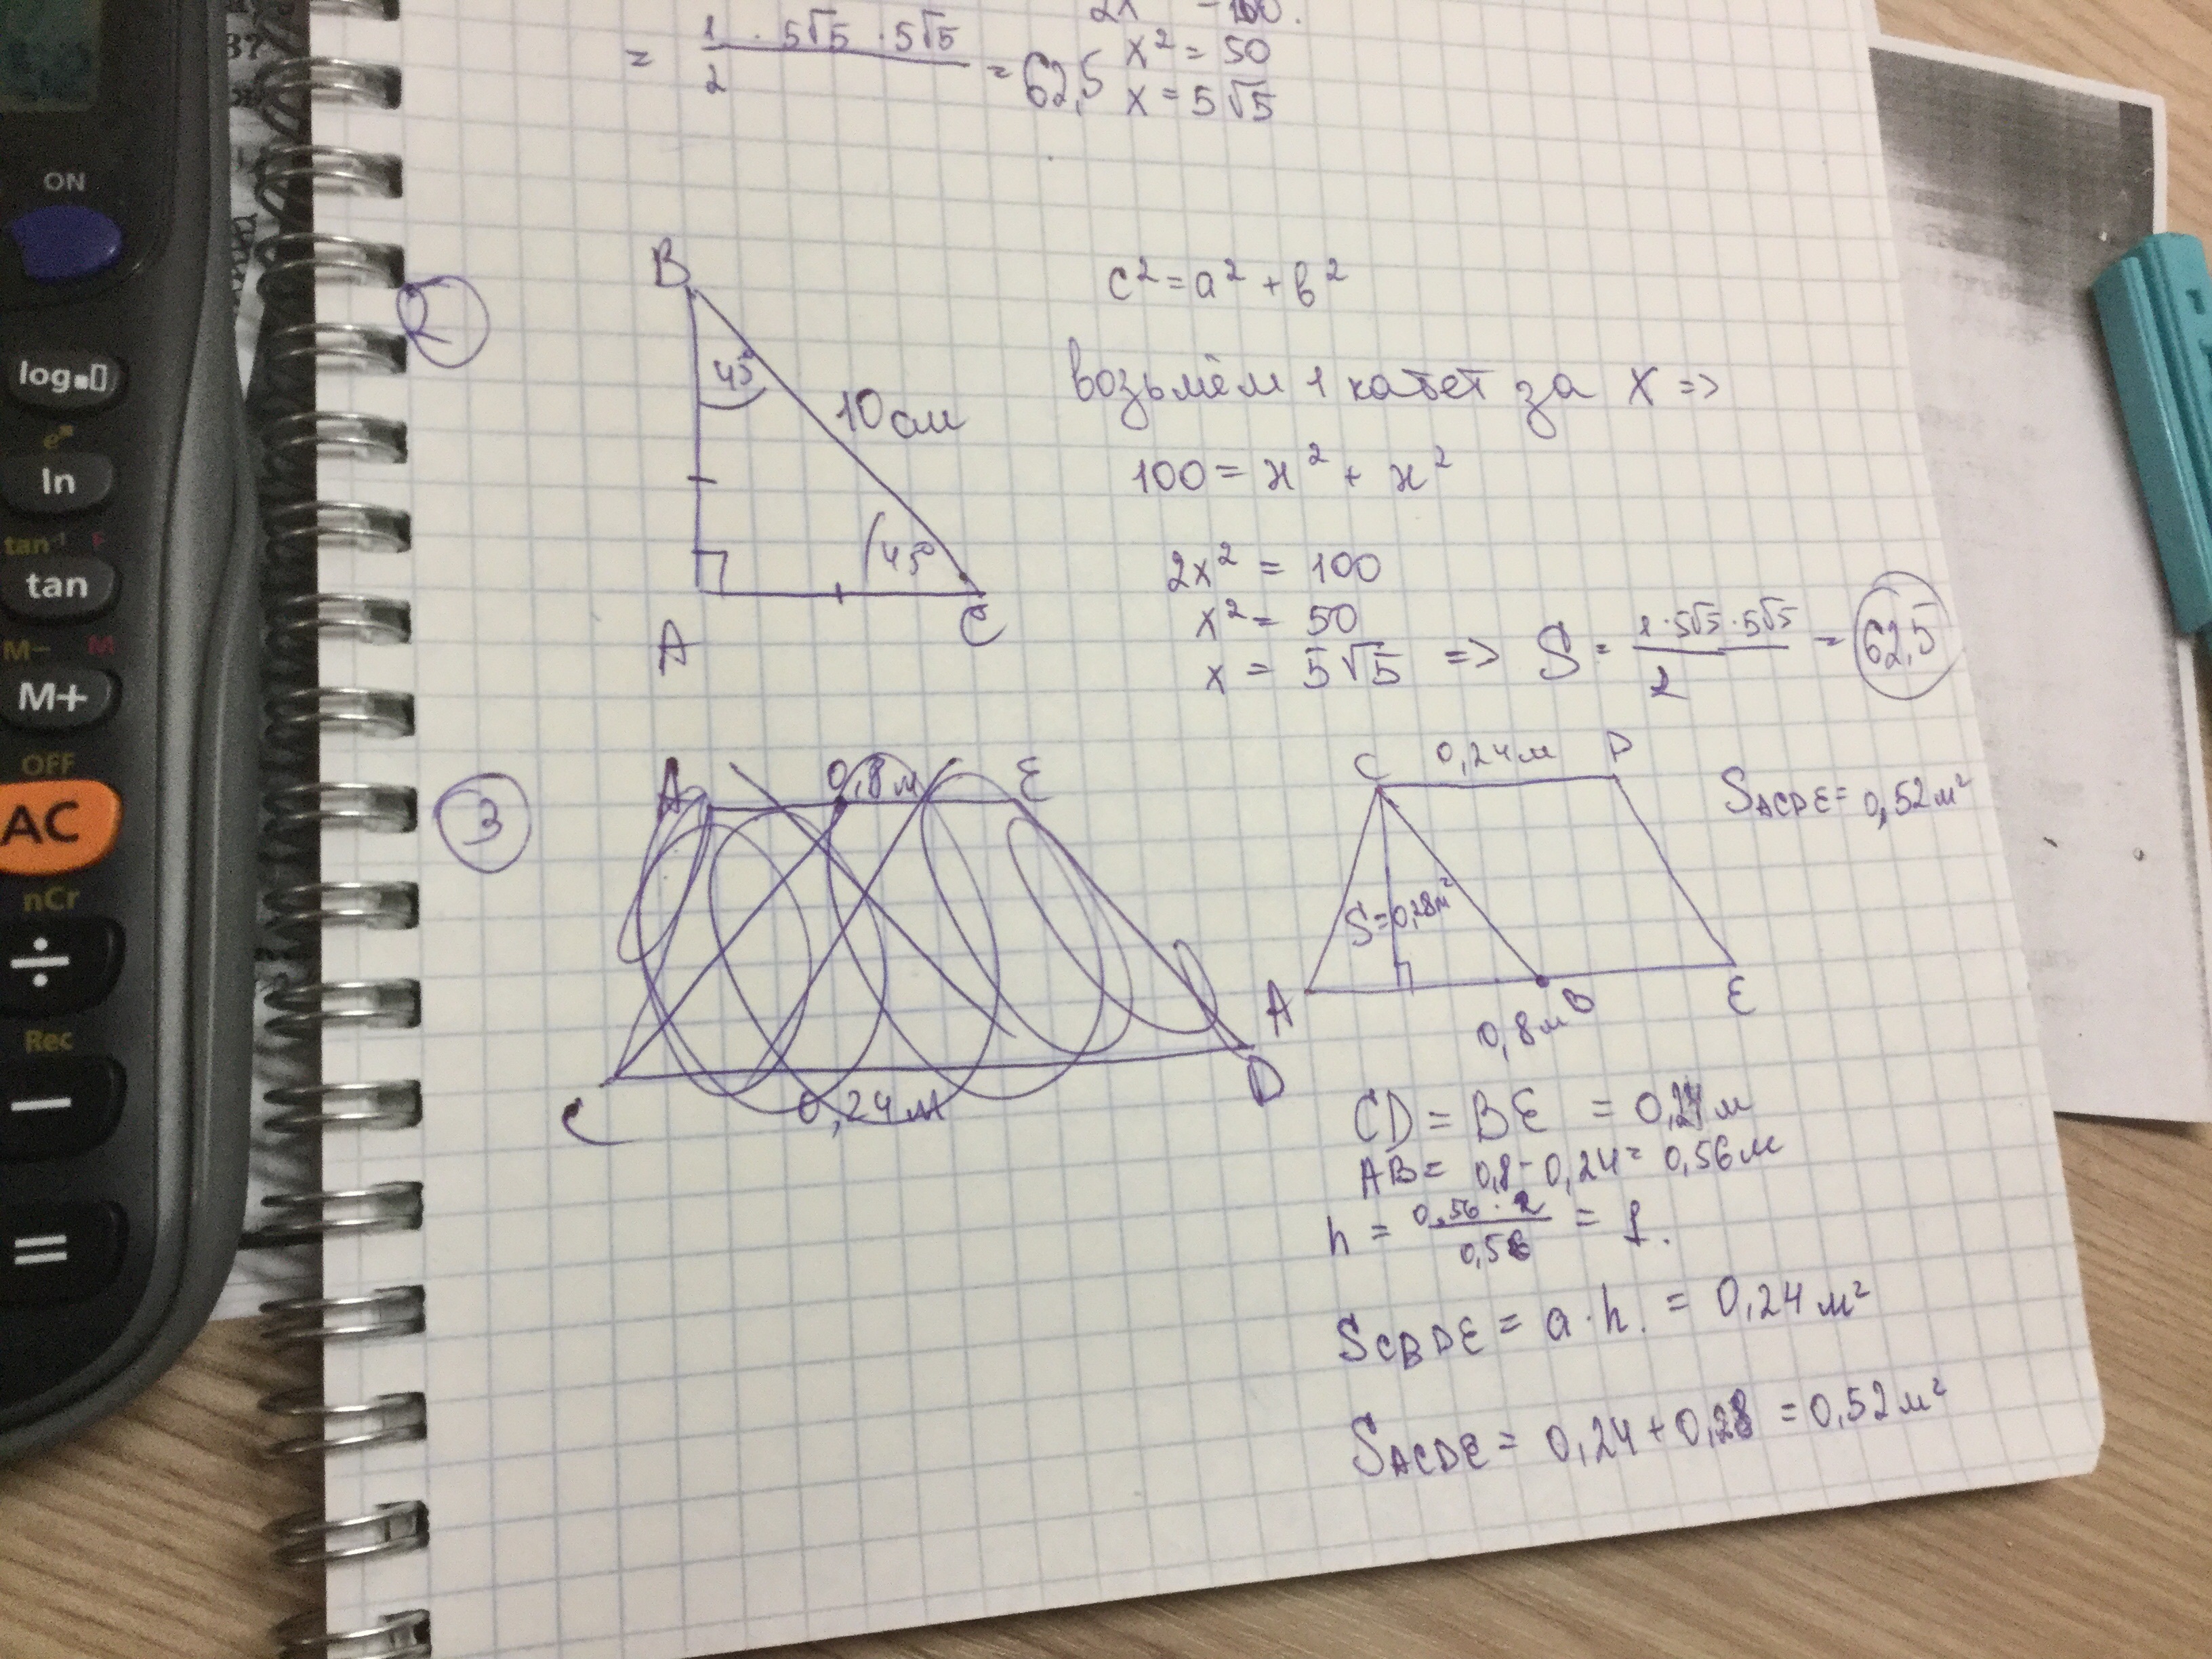 2x = 100.
= 1 · 5√5 · 5√5 / 2 = 62,5
x² = 50
x = 5√5
ON
log
eˣ
ln
tan⁻¹ F
tan
M− M
M+
OFF
AC
nCr
÷
Rec
−
=
2
B
45°
10см
45°
A
C
c² = a² + b²
возьмём 1 катет за x =>
100 = x² + x²
2x² = 100
x² = 50
x = 5√5 => S = 1 · 5√5 · 5√5 / 2 = 62,5
3
A 0,8м E
C 0,24м D
C 0,24м D
S ACDE = 0,52м²
S=0,28м²
A B E
0,8м
CD = BE = 0,24м
AB = 0,8 - 0,24 = 0,56м
h = 0,56 · 2 / 0,56 = 1.
S CBDE = a · h. = 0,24м²
S ACDE = 0,24 + 0,28 = 0,52м²